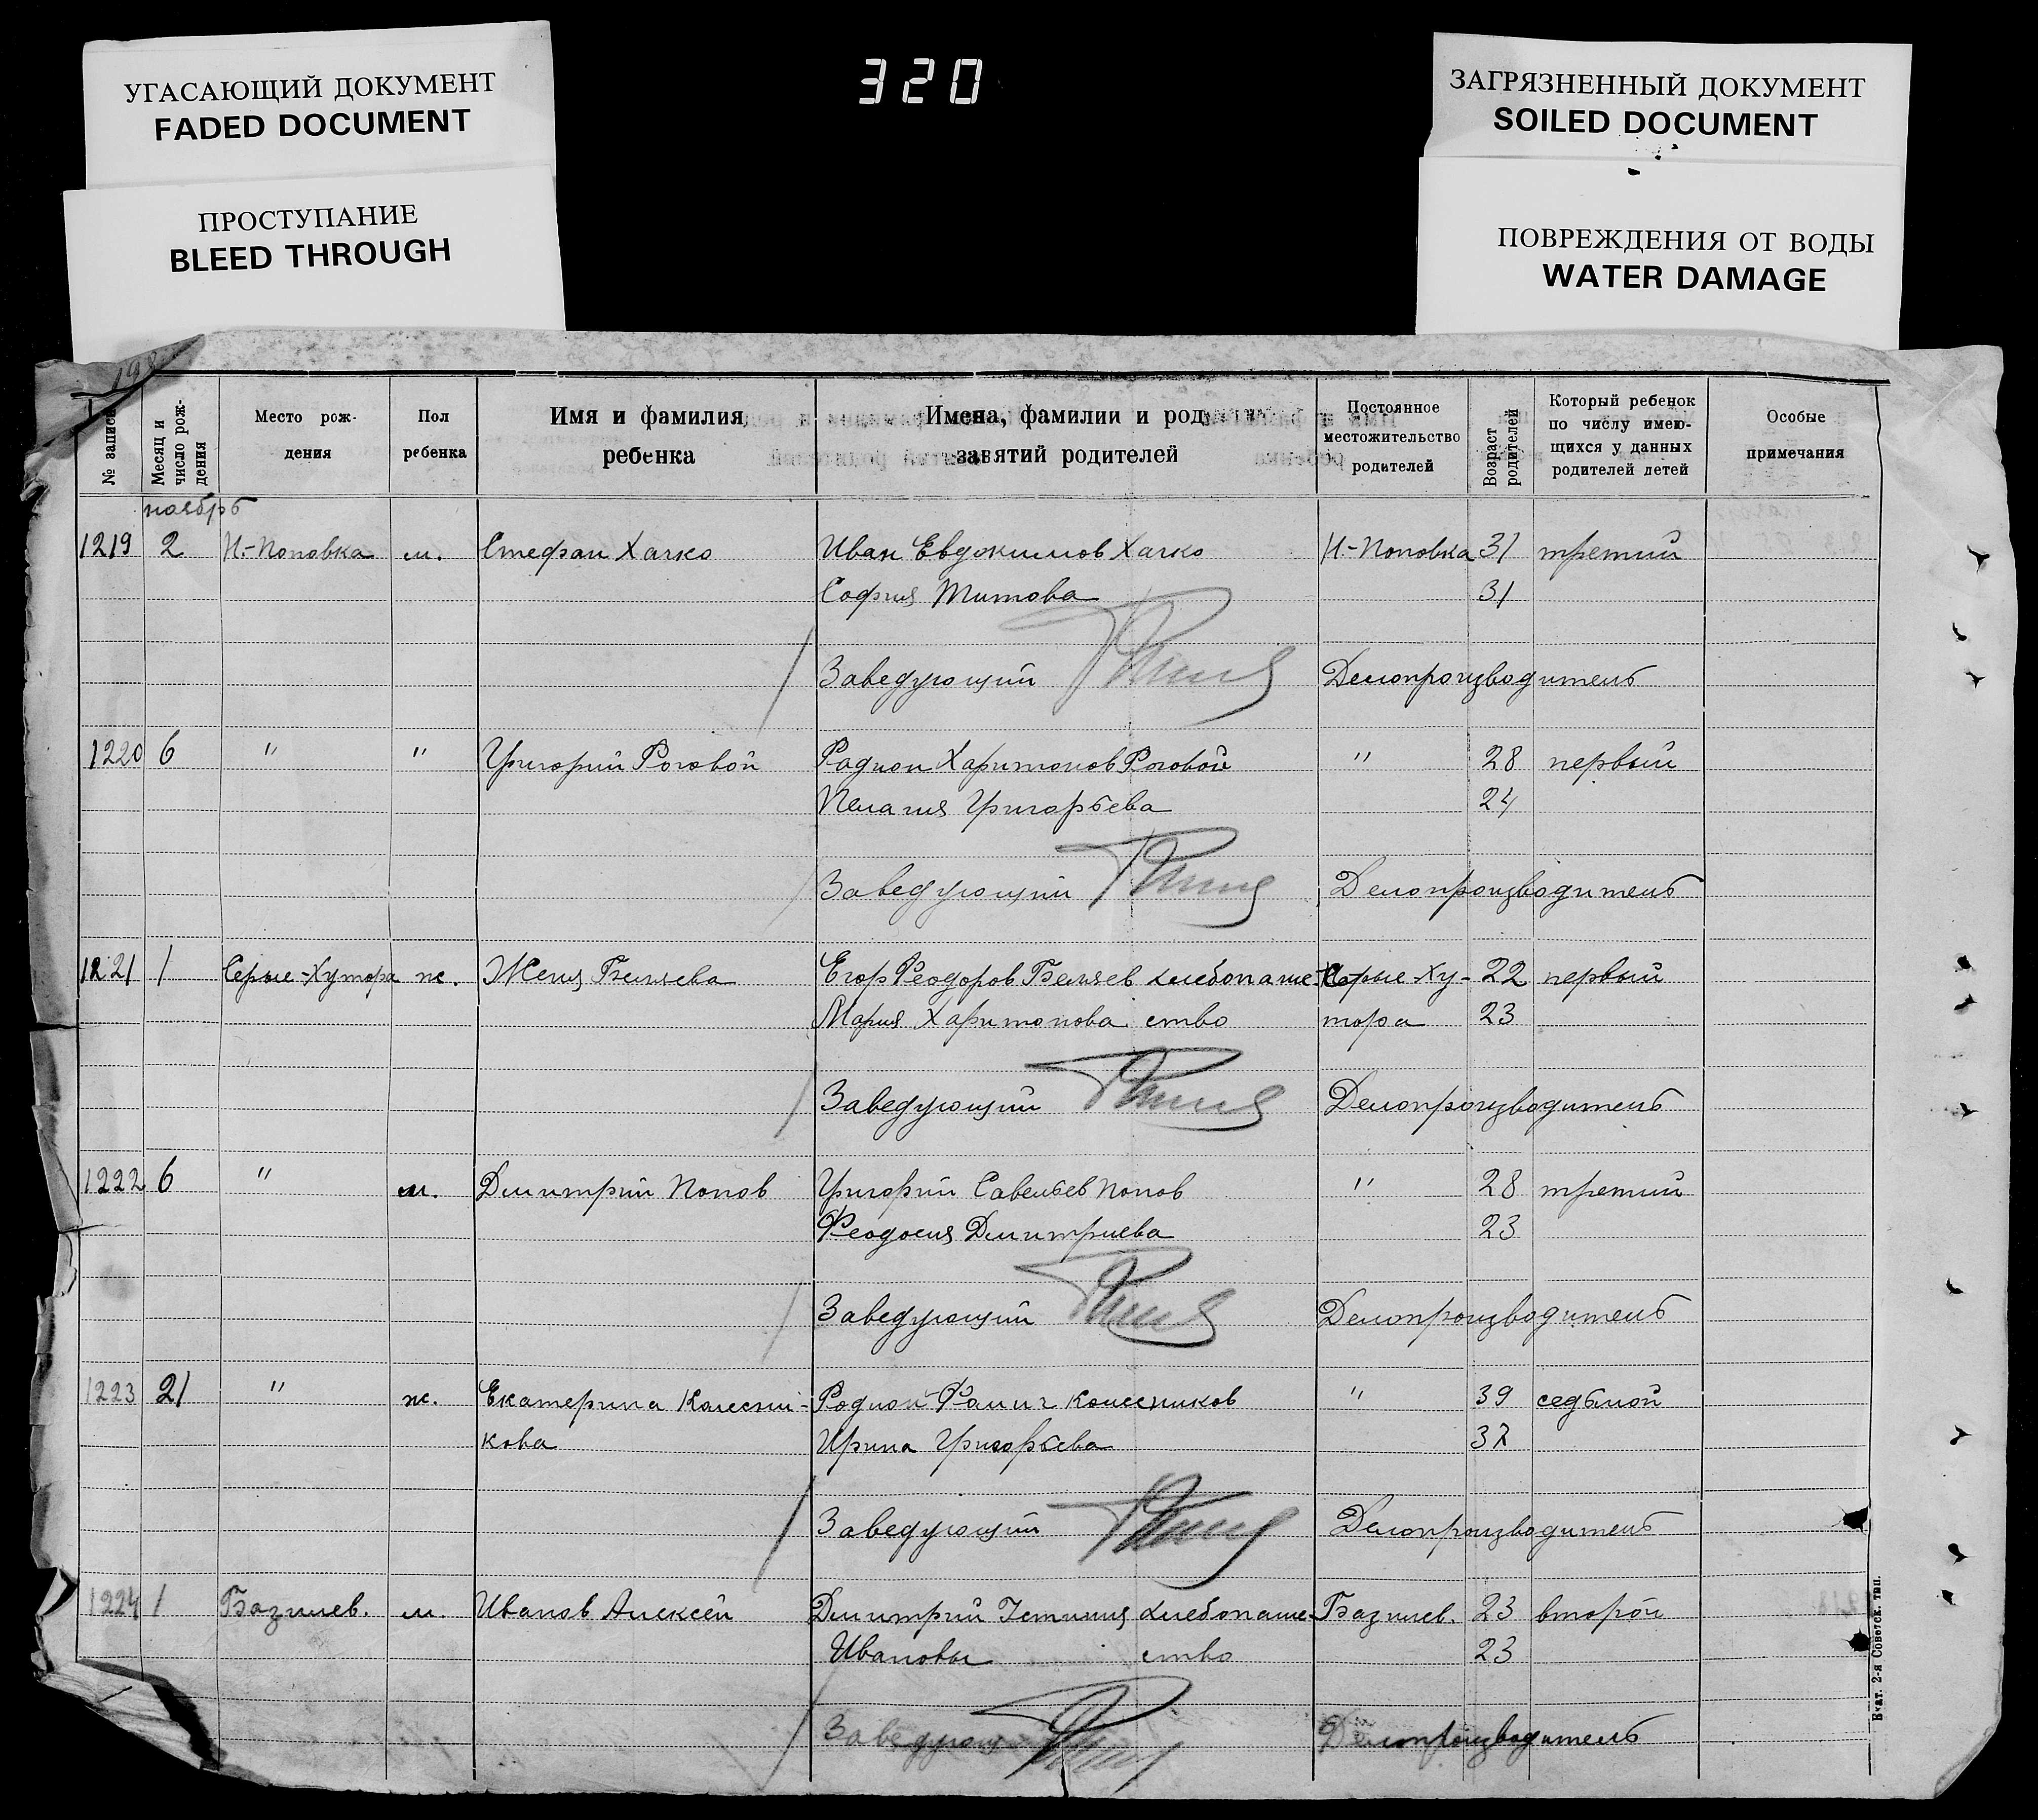 320
УГАСАЮЩИЙ ДОКУМЕНТ
FADED DOCUMENT
ПРОСТУПАНИЕ
BLEED THROUGH
ЗАГРЯЗНЕННЫЙ ДОКУМЕНТ
SOILED DOCUMENT
ПОВРЕЖДЕНИЯ ОТ ВОДЫ
WATER DAMAGE
№ записи
Месяц и число рож-дения
Место рож-дения
Пол ребенка
Имя и фамилия ребенка
Имена, фамилии и род занятий родителей
Постоянное местожительство родителей
Возраст родителей
Который ребенок по числу имею-щихся у данных родителей детей
Особые примечания
ноябрь
1219 2 Н.-Поповка м. Стефан Хачко Иван Евдокимов Хачко Н-Поповка 31 третий
София Титова 31
Заведующий Делопроизводитель
1220 6 " " Григорий Роговой Радион Харитонов Роговой " 28 первый
Пелагия Григорьева 24
Заведующий Делопроизводитель
1221 1 Серые-Хутора ж. Женя Беляева Егор Феодоров Беляев хлебопаше- Серые-Ху- 22 первый
Мария Харитонова ство тора 23
Заведующий Делопроизводитель
1222 6 " м. Димитрий Попов Григорий Савельев Попов " 28 третий
Феодосия Димитриева 23
Заведующий Делопроизводитель
1223 21 " ж. Екатерина Колесни- Родион Колесников " 39 седьмой
кова Ирина Григорьева 37
Заведующий Делопроизводитель
1224 1 Базилев. м. Иванов Алексей Димитрий хлебопаше- Базилев. 23 второй
Ивановы ство 23
Заведующ Делопроизводитель
2-я Советск. тип.